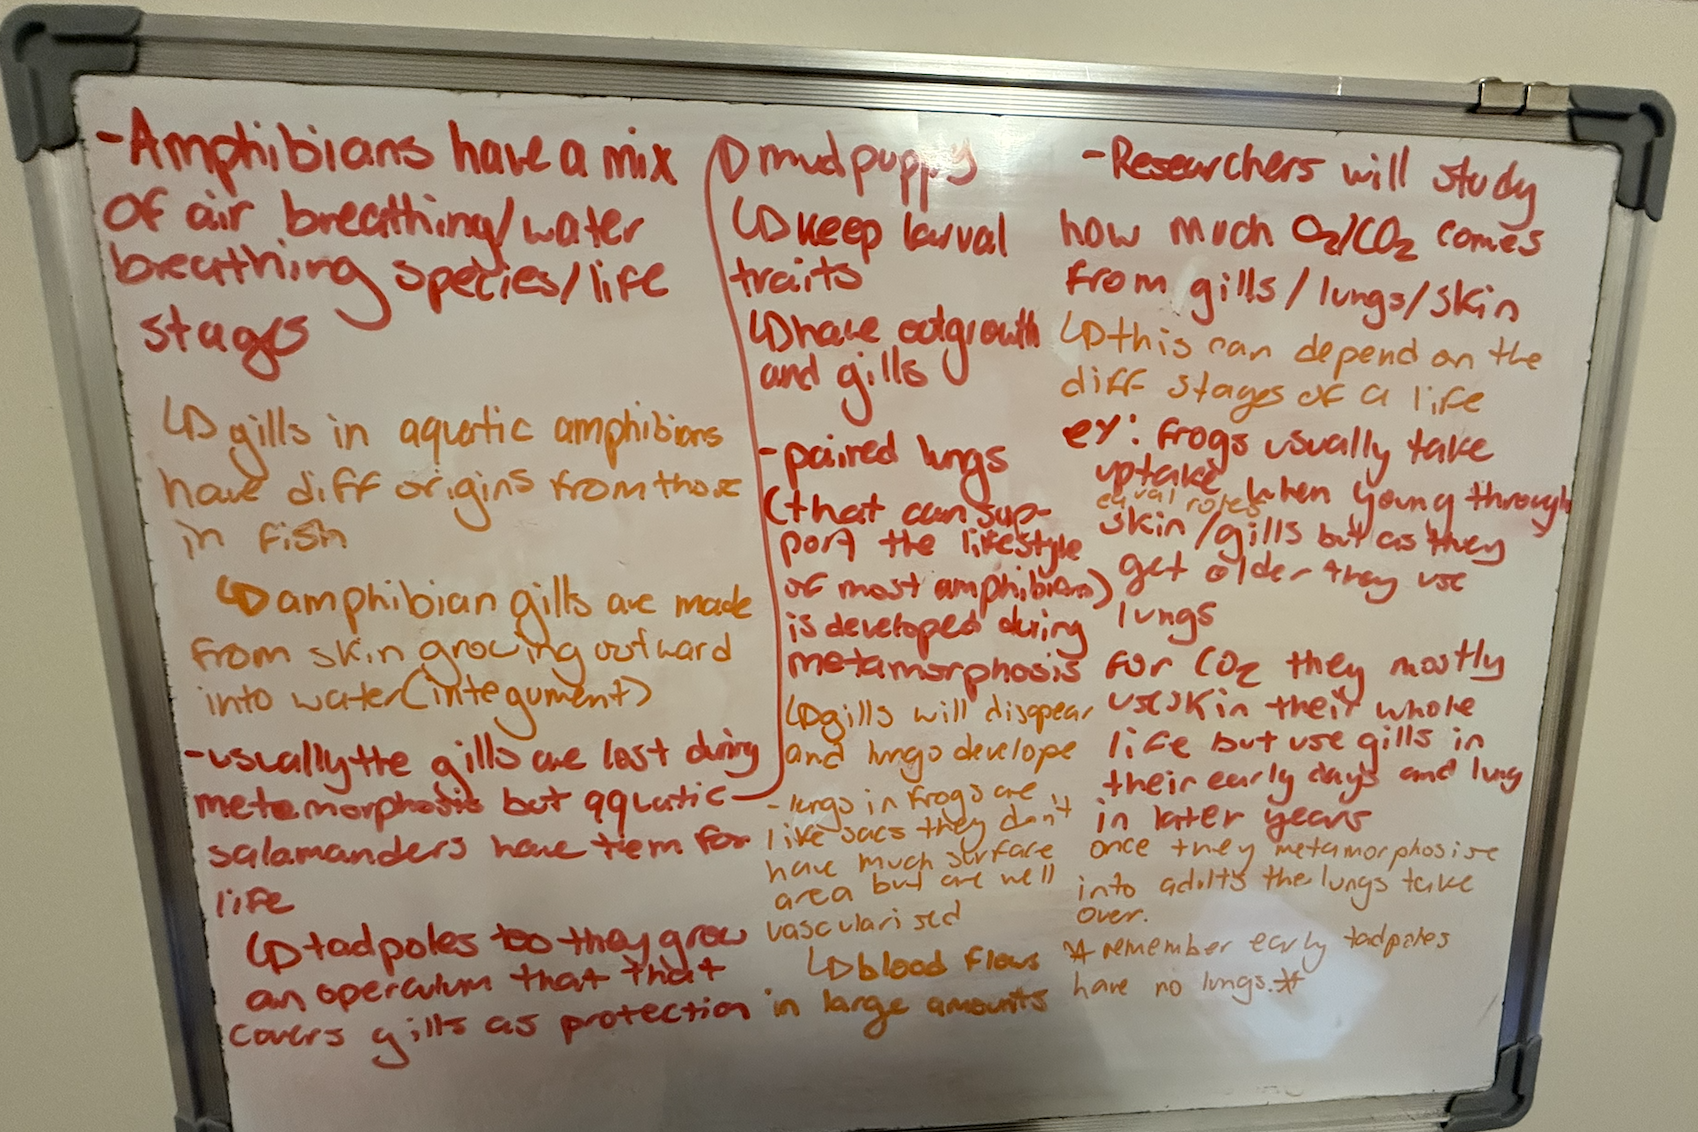 -Amphibians have a mix
of air breathing/water
breathing species/life
stages
↳gills in aquatic amphibians
have diff origins from those
in fish
↳amphibian gills are made
from skin growing outward
into water(integument)
-usually the gills are lost during
metamorphosis but aquatic
salamanders have tem for
life
↳tadpoles too they grow
an operculum that that
covers gills as protection
↳mudpuppy's
↳keep larval
traits
↳have outgrowth
and gills
-paired lungs
(that can sup-
port the lifestyle
of most amphibians)
is developed during
metamorphosis
↳gills will disapear
and lungs develope
-lungs in frogs are
like sacs they don't
have much surface
area but are well
vascularised
↳blood flows
in large amounts
-Researchers will study
how much O2/CO2 comes
from gills/lungs/skin
↳this can depend on the
diff stages of a life
ex: frogs usually take
uptake when young through
equal roles
skin/gills but as they
get older they use
lungs
for CO2 they mostly
use skin their whole
life but use gills in
their early days and lung
in later years
once they metamorphosise
into adults the lungs take
over.
*remember early tadpoles
have no lungs.*